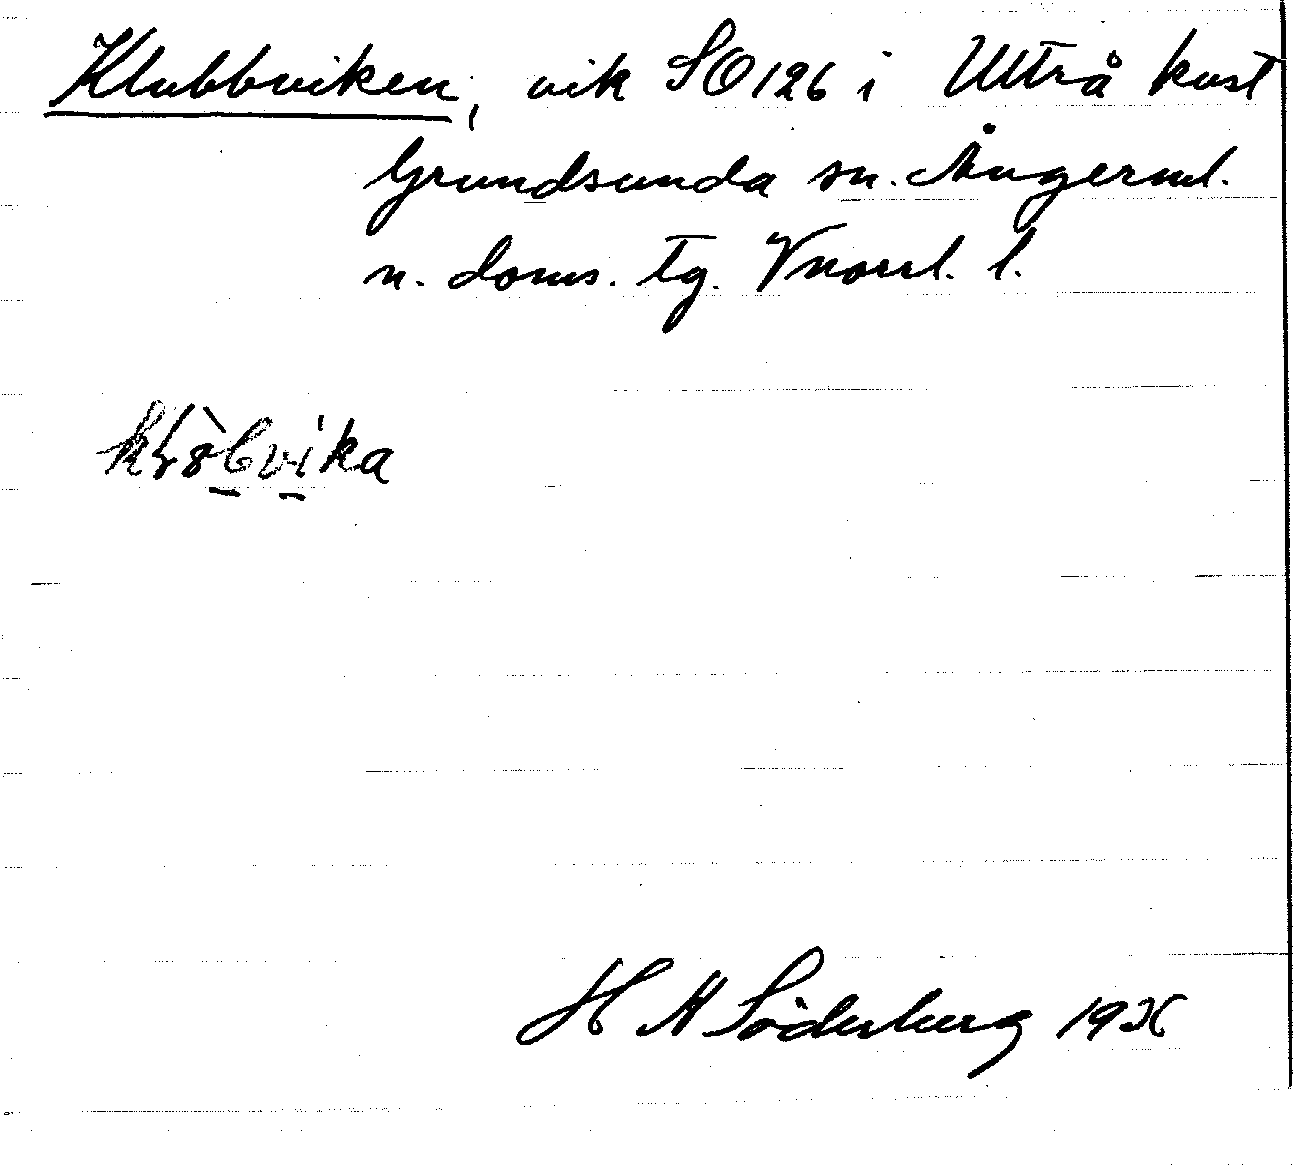 Klubbviken, vik SO126 i Ultrå kust
Grundsunda sn. Ångerml.
n. doms. tg. Vnorrl. l.
H A Söderberg 19